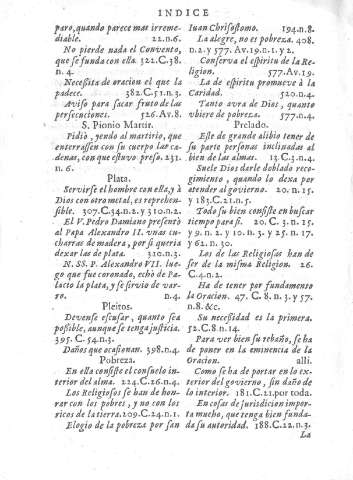 INDICE
paro, quando parece mas irreme-
diable. 22.n.6.
No pierde nada el Convento,
que se funda con ella 322.C.38.
n.4.
Necessita de oracion el que la
padece. 382.C.51.n.3.
Aviso para sacar fruto de las
persecuciones. 526.Av.8.
S. Pionio Martir.
Pidiò, yendo al martirio, que
enterrassen con su cuerpo las ca-
denas, con que estuvo preso. 231.
n.6.
Plata.
Servirse el hombre con ella, y à
Dios con otro metal, es reprehen-
sible. 307.C.34.n.2.y 310.n.2.
El V. Pedro Damiano presentò
al Papa Alexandro II. unas cu-
charras de madera, por si queria
dexar las de plata. 310.n.3.
N. SS. P. Alexandro VII. lue-
go que fue coronado, echò de Pa-
lacio la plata, y se sirvio de var-
ro. n.4.
Pleitos.
Devense escusar, quanto sea
possible, aunque se tenga justicia.
395. C.54.n.3.
Daños que ocasionan. 398.n.4.
Pobreza.
En ella consiste el consuelo in-
terior del alma. 224.C.26.n.4.
Los Religiosos se han de hon-
rar con los pobres, y no con los
ricos de la tierra. 209.C.24.n.1.
Elogio de la pobreza por san
Iuan Chrisostomo. 194.n.8.
La alegre, no es pobreza. 408.
n.2.y 577. Av.19.n.1.y 2.
Conserva el espiritu de la Re-
ligion. 577.Av.19.
La de espiritu promueve à la
Caridad. 520.n.4.
Tanto avra de Dios, quanto
ubiere de pobreza. 577.n.4.
Prelado.
Este de grande alibio tener de
su parte personas inclinadas al
bien de las almas. 13.C.3.n.4.
Suele Dios darle doblado reco-
gimiento, quando lo dexa por
atender al govierno. 20.n.15.
y 183.C.21.n.5.
Todo su bien consiste en buscar
tiempo para si. 20. C. 3.n. 15.
y 9. n.2.y 10. n.3.y 25.n.17.
y 62.n.30.
Los de las Religiosas han de
ser de la misma Religion. 26.
C.4.n.2.
Ha de tener por fundamento
la Oracion. 47. C.8. n.3. y 57.
n.8.&c.
Su necessidad es la primera.
52.C.8.n.14.
Para ver bien su rebaño, se ha
de poner en la eminencia de la
Oracion. alli.
Como se ha de portar en lo ex-
terior del govierno, sin daño de
lo interior. 181.C.21.por toda.
En cosas de jurisdicion impor-
ta mucho, que tenga bien funda-
da su autoridad. 188.C.22.n.3.
La